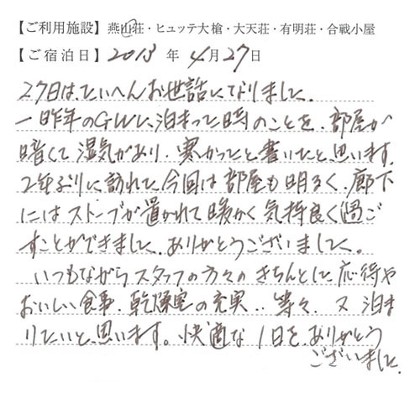 【ご利用施設】 燕山荘・ヒュッテ大槍・大天荘・有明荘・合戦小屋
【ご宿泊日】 2013 年 4月27日
27日はたいへんお世話になりました。
一昨年のGWに泊まった時のことを、部屋が
暗くて湿気があり、寒かったと書いたと思います。
2年ぶりに訪れた今回は部屋も明るく、廊下
にはストーブが置かれて暖かく気持良く過ご
すことができました。ありがとうございました。
いつもながらスタッフの方々のきちんとした応待や
おいしい食事、乾燥室の充実‥等々、又泊ま
りたいと思います。快適な1日を、ありがとう
ございました。